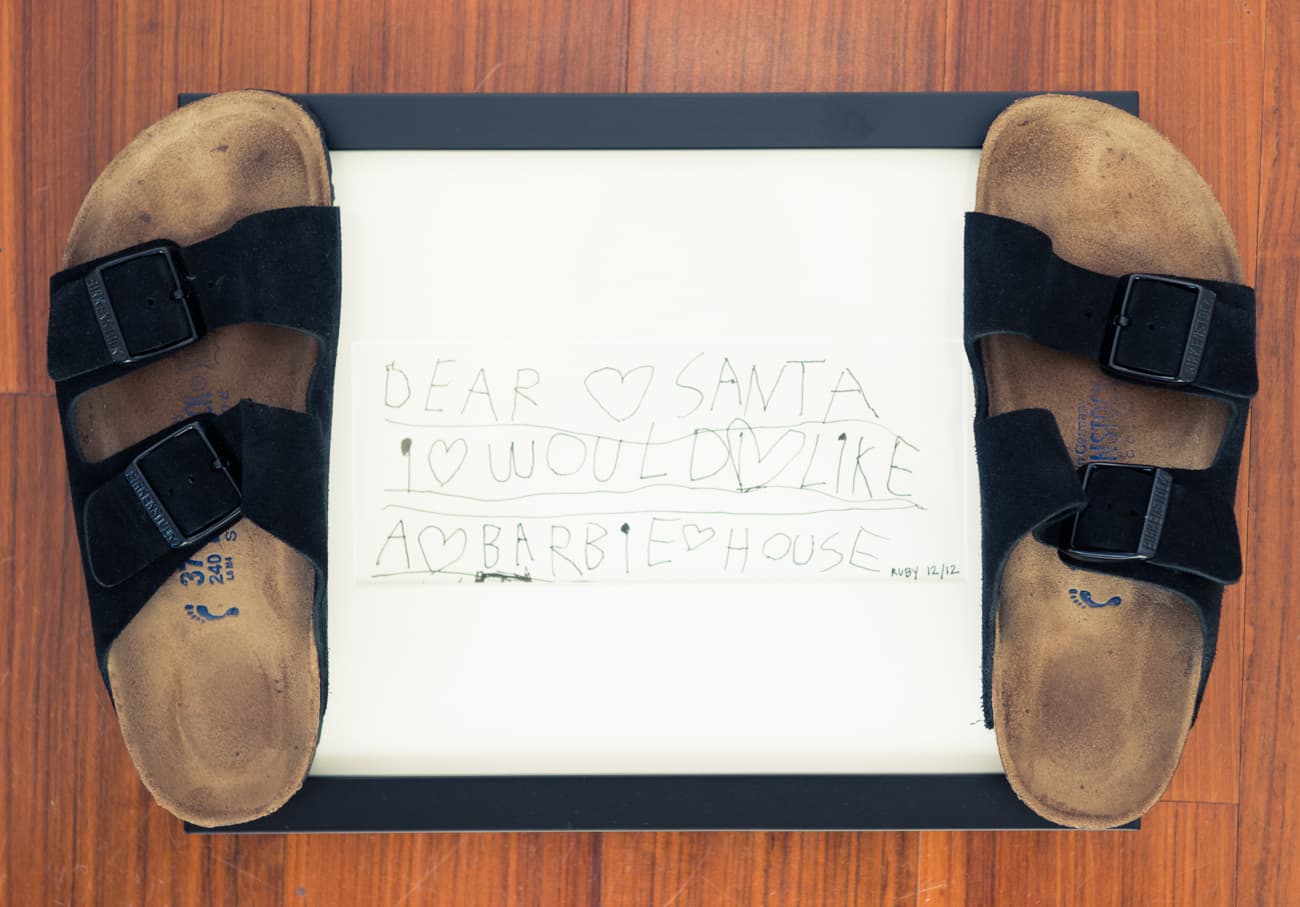 DEAR ♡ SANTA
i ♡ WOULD ♡ LIKE
A ♡ BARBiE ♡ HOUSE
RUBY 12/12
BIRKENSTOCK
BIRKENSTOCK
37
240
BIRKENSTOCK
BIRKENSTOCK